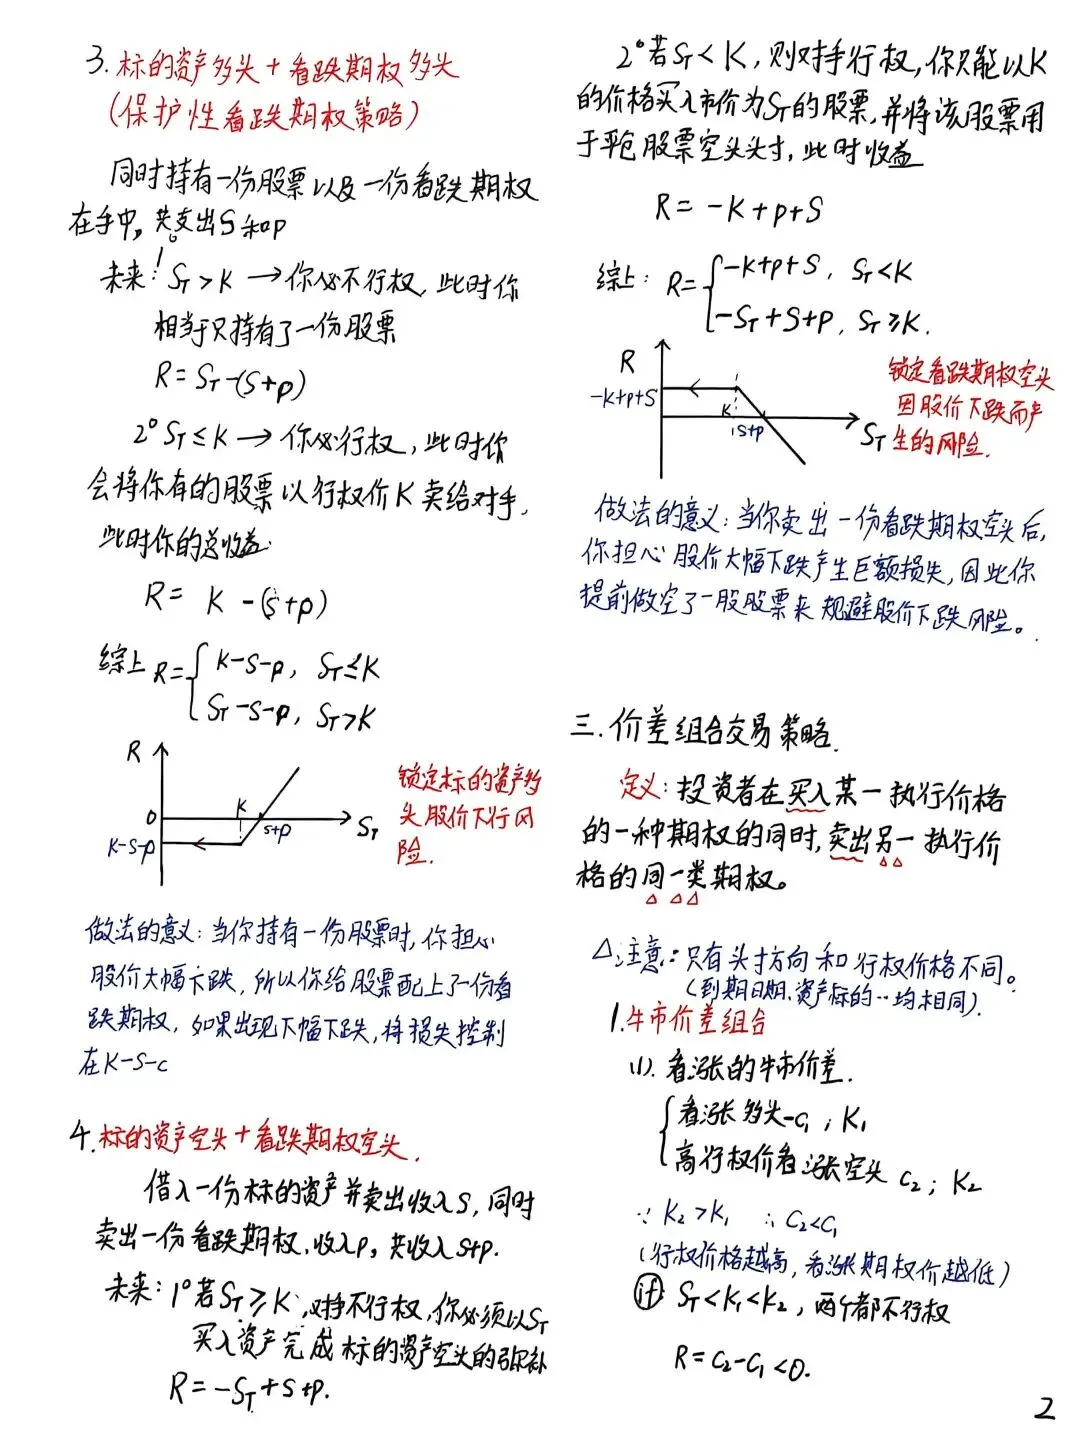 3. 标的资产多头 + 看跌期权多头
(保护性看跌期权策略)
同时持有一份股票以及一份看跌期权
在手中, 共支出S和p
未来: 1° S_T > K → 你必不行权, 此时你
相当于只持有了一份股票
R = S_T - (S+p)
2° S_T ≤ K → 你必行权, 此时你
会将你有的股票以行权价K卖给对手,
此时你的总收益:
R = K - (S+p)
综上 R = { K-S-p, S_T ≤ K
S_T - S - p, S_T > K
R
0
K
S+p
S_T
K-S-p
锁定标的资产多
头股价下行风
险.
做法的意义: 当你持有一份股票时, 你担心
股价大幅下跌, 所以你给股票配上了一份看
跌期权, 如果出现下幅下跌, 将损失控制
在K-S-c
4. 标的资产空头 + 看跌期权空头.
借入一份标的资产并卖出收入S, 同时
卖出一份看跌期权, 收入p, 共收入S+p.
未来: 1° 若S_T ≥ K, 对手不行权, 你必须以S_T
买入资产完成标的资产空头的弥补
R = -S_T + S + p.
2° 若S_T < K, 则对手行权, 你只能以K
的价格买入市价为S_T的股票, 并将该股票用
于平仓股票空头头寸, 此时收益
R = -K + p + S
综上: R = { -K+p+S, S_T < K
-S_T + S + p, S_T ≥ K.
R
-K+p+S
K
S+p
S_T
锁定看跌期权空头
因股价下跌而产
生的风险.
做法的意义: 当你卖出一份看跌期权空头后,
你担心股价大幅下跌产生巨额损失, 因此你
提前做空了一股股票来规避股价下跌风险。
三. 价差组合交易策略.
定义: 投资者在买入某一执行价格
的一种期权的同时, 卖出另一执行价
格的同一类期权。
△注意: 只有头寸方向和行权价格不同。
(到期日期、资产标的…均相同).
1. 牛市价差组合
(1). 看涨的牛市价差.
{ 看涨多头 -c₁; K₁
高行权价看涨空头 c₂; K₂
∵ K₂ > K₁ ∴ c₂ < c₁
(行权价格越高, 看涨期权价越低)
if S_T < K₁ < K₂, 两个都不行权
R = c₂ - c₁ < 0.
2